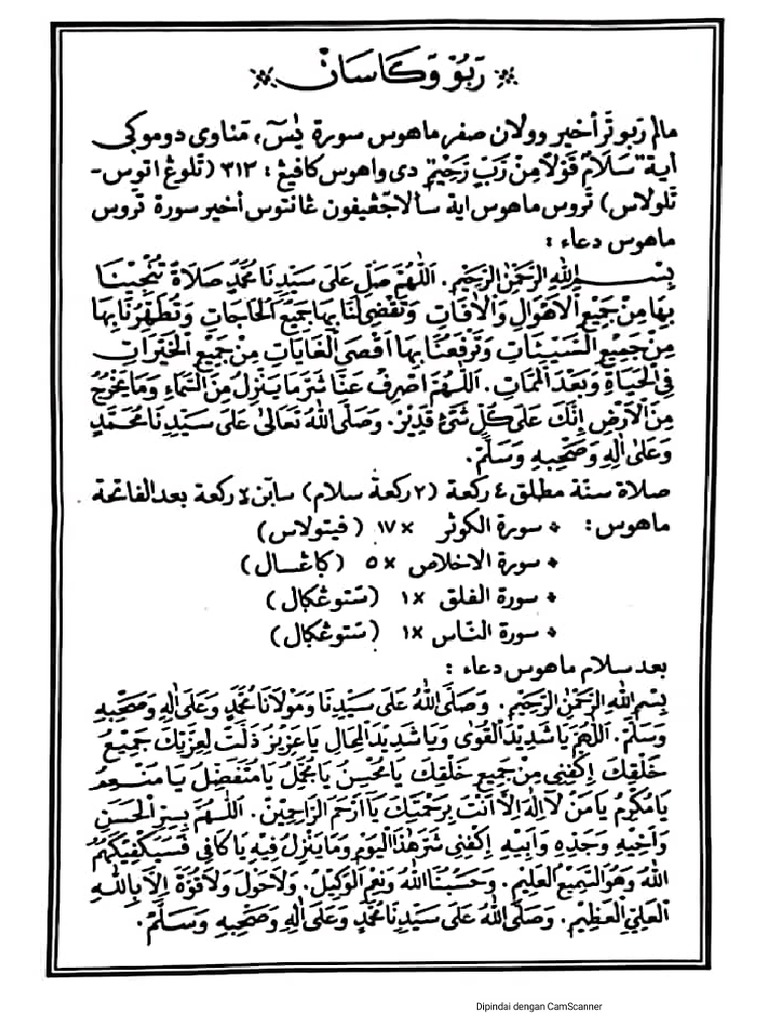 ربو وكاسان
مالم ربو تر أخير وولان صفر ماهوس سورة يٰسٓ، مَناوى دوموكى
اية "سَلَامٌ قَوْلًا مِنْ رَبٍّ رَحِيْمٍ" دى واهوس كافيڠ : ٣١٣ (تلوڠ اتوس-
تلولاس) تروس ماهوس اية سألاجڠيفون غانتوس أخير سورة تروس
ماهوس دعاء :
بِسْمِ اللهِ الرَّحْمٰنِ الرَّحِيْمِ. اَللّٰهُمَّ صَلِّ عَلَى سَيِّدِنَا مُحَمَّدٍ صَلَاةً تُنْجِيْنَا
بِهَا مِنْ جَمِيْعِ الْاَهْوَالِ وَالْاٰفَاتِ وَتَقْضِيْ لَنَا بِهَا جَمِيْعَ الْحَاجَاتِ وَتُطَهِّرُنَا بِهَا
مِنْ جَمِيْعِ السَّيِّئَاتِ وَتَرْفَعُنَا بِهَا اَقْصَى الْغَايَاتِ مِنْ جَمِيْعِ الْخَيْرَاتِ
فِي الْحَيَاةِ وَبَعْدَ الْمَمَاتِ. اَللّٰهُمَّ اصْرِفْ عَنَّا شَرَّ مَا يَنْزِلُ مِنَ السَّمَاءِ وَمَا يَخْرُجُ
مِنَ الْاَرْضِ اِنَّكَ عَلَى كُلِّ شَيْءٍ قَدِيْرٌ. وَصَلَّى اللهُ تَعَالٰى عَلَى سَيِّدِنَا مُحَمَّدٍ
وَعَلٰى اٰلِهِ وَصَحْبِهِ وَسَلَّمَ.
صلاة سنة مطلق ٤ ركعة (٢ ركعة سلام) سابن٢ ركعة بعد الفاتحة
ماهوس : * سورة الكوثر ×١٧ (فيتولاس)
* سورة الاخلاص ×٥ (كاڠسال)
* سورة الفلق ×١ (ستوڠكال)
* سورة الناس ×١ (ستوڠكال)
بعد سلام ماهوس دعاء :
بِسْمِ اللهِ الرَّحْمٰنِ الرَّحِيْمِ. وَصَلَّى اللهُ عَلَى سَيِّدِنَا وَمَوْلَانَا مُحَمَّدٍ وَعَلَى اٰلِهِ وَصَحْبِهِ
وَسَلَّمَ. اَللّٰهُمَّ يَا شَدِيْدَ الْقُوٰى وَيَا شَدِيْدَ الْمِحَالِ يَا عَزِيْزُ ذَلَّتْ لِعِزَّتِكَ جَمِيْعُ
خَلْقِكَ اِكْفِنِيْ مِنْ جَمِيْعِ خَلْقِكَ يَا مُحْسِنُ يَا مُجَمِّلُ يَا مُتَفَضِّلُ يَا مُنْعِمُ
يَا مُكْرِمُ يَا مَنْ لَا اِلٰهَ اِلَّا اَنْتَ بِرَحْمَتِكَ يَا اَرْحَمَ الرَّاحِمِيْنَ. اَللّٰهُمَّ بِسِرِّ الْحَسَنِ
وَاَخِيْهِ وَجَدِّهِ وَاَبِيْهِ اِكْفِنِيْ شَرَّ هٰذَا الْيَوْمِ وَمَا يَنْزِلُ فِيْهِ يَا كَافِي فَسَيَكْفِيْكَهُمُ
اللهُ وَهُوَ السَّمِيْعُ الْعَلِيْمُ. وَحَسْبُنَا اللهُ وَنِعْمَ الْوَكِيْلُ. وَلَا حَوْلَ وَلَا قُوَّةَ اِلَّا بِاللهِ
الْعَلِيِّ الْعَظِيْمِ. وَصَلَّى اللهُ عَلَى سَيِّدِنَا مُحَمَّدٍ وَعَلَى اٰلِهِ وَصَحْبِهِ وَسَلَّمَ.
Dipindai dengan CamScanner